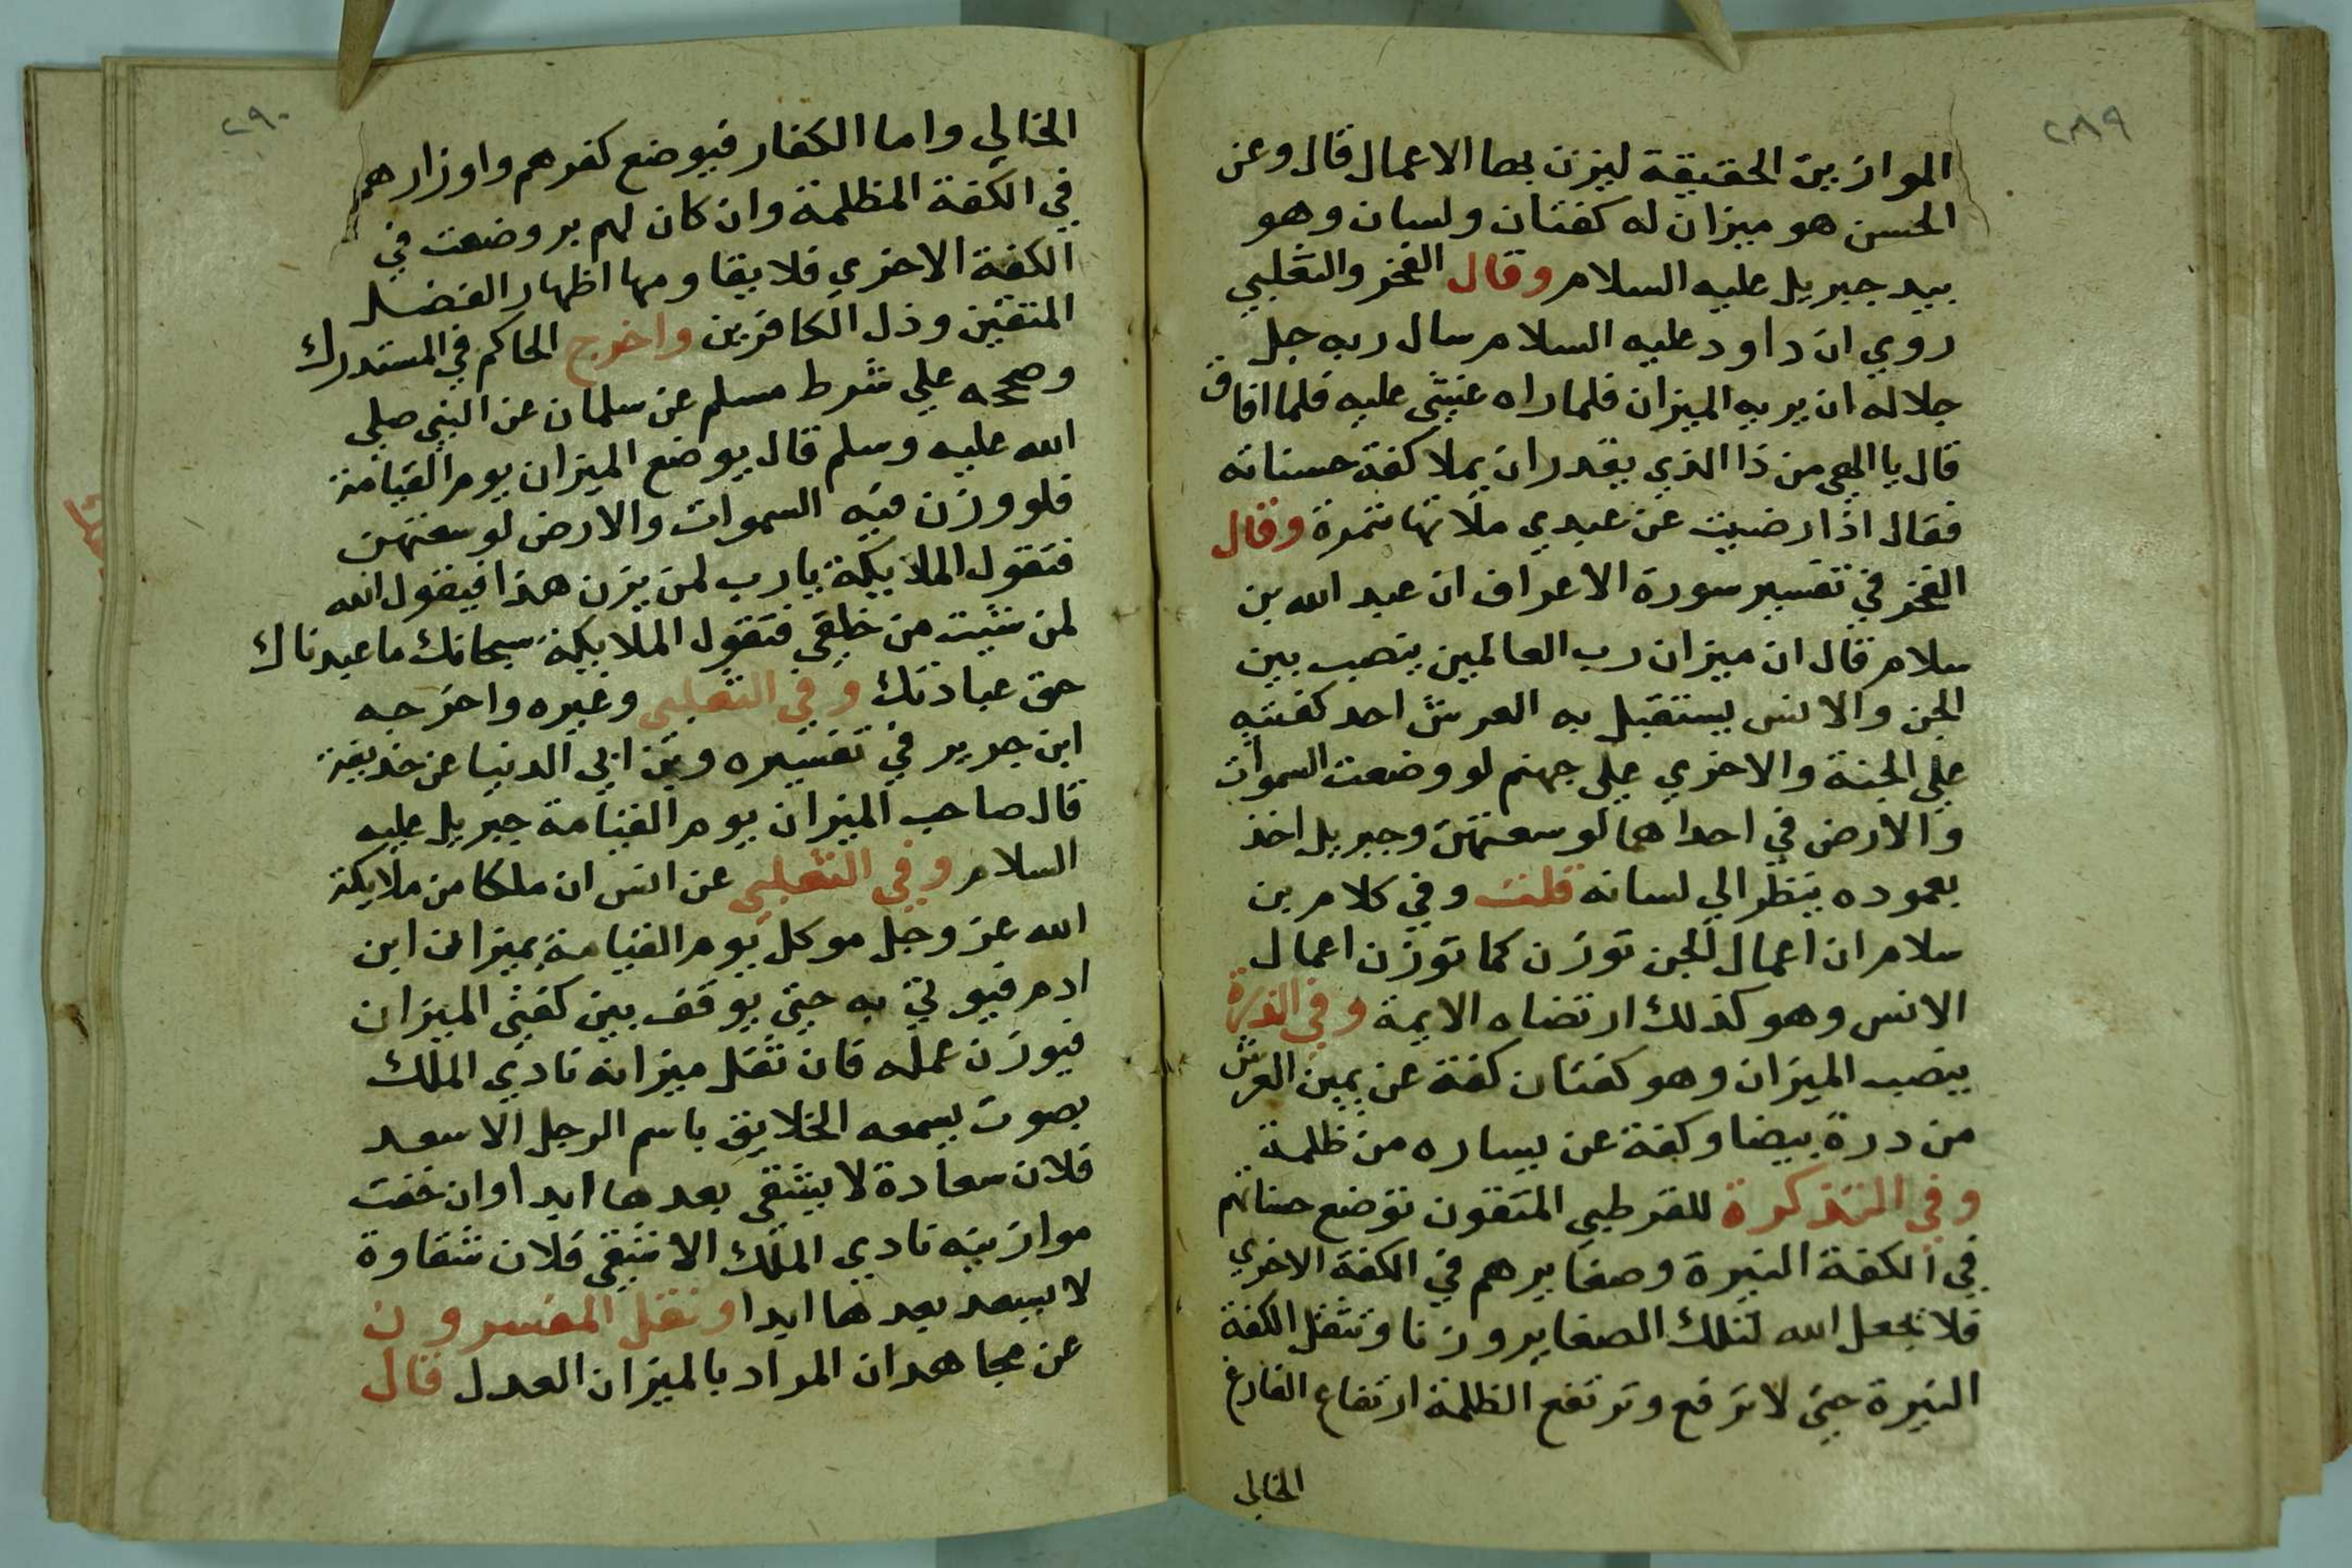 ٢٨٩
الموازين الحقيقة ليزن بها الاعمال قال وعن
الحسن هو ميزان له كفتان ولسان وهو
بيد جبريل عليه السلام وقال الفخر والثعلبي
روي ان داود عليه السلام سال ربه جل
جلاله ان يريه الميزان فلما راه غشي عليه فلما افاق
قال يا الهي من ذا الذي يقدر ان يملا كفة حسناته
فقال اذا رضيت عن عبدي ملاتها بتمرة وقال
الفخر في تفسير سورة الاعراف ان عبد الله بن
سلام قال ان ميزان رب العالمين ينصب بين
الجن والانس يستقبل به العرش احد كفتيه
علي الجنة والاخري علي جهنم لو وضعت السموات
والارض في احداهما لوسعتهن وجبريل اخذ
بعموده ينظر الي لسانه قلت وفي كلام بن
سلام ان اعمال الجن توزن كما توزن اعمال
الانس وهو كذلك ارتضاه الايمة وفي الدرة
ينصب الميزان وهو كفتان كفة عن يمين العرش
من درة بيضا وكفة عن يساره من ظلمة
وفي التذكرة للقرطبي المتقون توضع حسناتهم
في الكفة النيرة وصغايرهم في الكفة الاخري
فلا يجعل الله لتلك الصغاير وزنا وتثقل الكفة
النيرة حتي لا ترفع وترتفع الظلمة ارتفاع الفارغ
الخالي
٢٩٠
الخالي واما الكفار فيوضع كفرهم واوزارهم
في الكفة المظلمة وان كان لهم بر وضعت في
الكفة الاخري فلا يقاومها اظهار الفضل
المتقين وذل الكافرين واخرج الحاكم في المستدرك
وصححه علي شرط مسلم عن سلمان عن النبي صلي
الله عليه وسلم قال يوضع الميزان يوم القيامة
فلو وزن فيه السموات والارض لوسعتهن
فتقول الملايكة يا رب لمن يزن هذا فيقول الله
لمن شيت من خلقي فتقول الملايكة سبحانك ما عبدناك
حق عبادتك وفي الثعلبي وغيره واخرجه
ابن جرير في تفسيره وبن ابي الدنيا عن حذيفة
قال صاحب الميزان يوم القيامة جبريل عليه
السلام وفي الثعلبي عن انس ان ملكا من ملايكة
الله عز وجل موكل يوم القيامة بميزان ابن
ادم فيوتي به حتي يوقف بين كفتي الميزان
فيوزن عمله فان ثقل ميزانه نادي الملك
بصوت يسمعه الخلايق باسم الرجل الا سعد
فلان سعادة لا يشقي بعدها ابدا وان خفت
موازينه نادي الملك الا شقي فلان شقاوة
لا يسعد بعدها ابدا ونقل المفسرون
عن مجاهد ان المراد بالميزان العدل قال